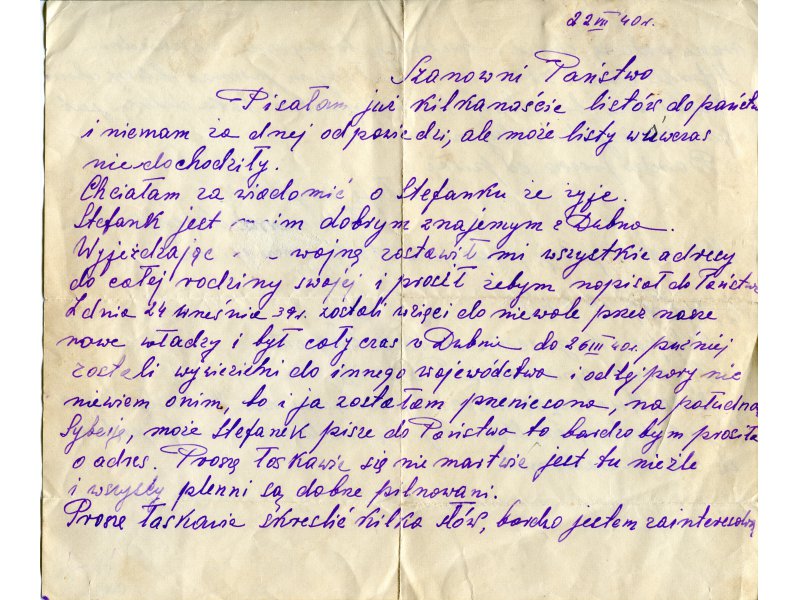 22 III 40 r.
Szanowni Państwo
Pisałam już kilkanaście listów do państw
i niemam ża dnej odpowiedzi, ale może listy wówczas
niedochodziły.
Chciałam za wiadomić o Stefanku że żyje.
Stefank jest moim dobrym znajemym z Dubna.
Wyjeżdzając wojną zostawił mi wszystkie adresy
do całej rodziny swojej i prosił żebym napisał do Państw
Z dnia 24 wreśnie 39 r. zostali wzięci do niewole przez nasze
nowe władzy i był cały czas w Dubnie do 26 III 40 r. puźniej
zostali wywiezieni do innego województwa i odtej pory nic
niewiem onim, bo i ja zostałam przeniesona, na południo
Syberję, może Stefanek pisze do Państwa to bardzo bym prosiła
o adres. Proszę łaskawie się nie martwić jest tu nieźle
i wszyscy plenni są dobrze pilnowani.
Proszę łaskawie skreslić kilka słów, bardzo jestem zainteresowa